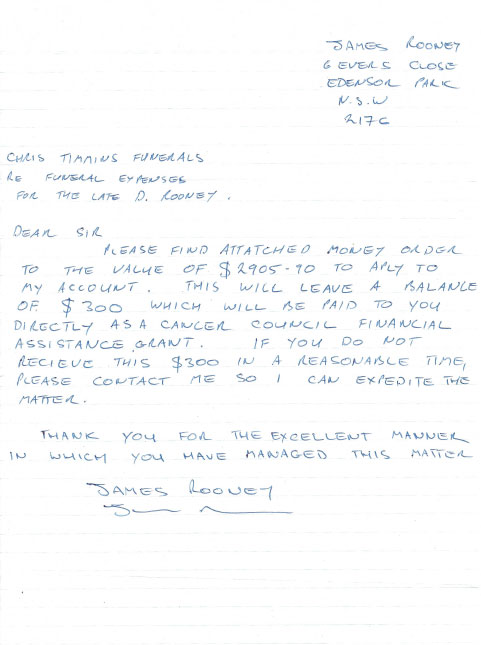 JAMES ROONEY
6 EVERS CLOSE
EDENSOR PARK
N.S.W
2176
CHRIS TIMMINS FUNERALS
RE FUNERAL EXPENSES
FOR THE LATE D. ROONEY.
DEAR SIR
PLEASE FIND ATTATCHED MONEY ORDER
TO THE VALUE OF $2905-90 TO APLY TO
MY ACCOUNT. THIS WILL LEAVE A BALANCE
OF $300 WHICH WILL BE PAID TO YOU
DIRECTLY AS A CANCER COUNCIL FINANCIAL
ASSISTANCE GRANT. IF YOU DO NOT
RECIEVE THIS $300 IN A REASONABLE TIME,
PLEASE CONTACT ME SO I CAN EXPEDITE THE
MATTER.
THANK YOU FOR THE EXCELLENT MANNER
IN WHICH YOU HAVE MANAGED THIS MATTER
JAMES ROONEY